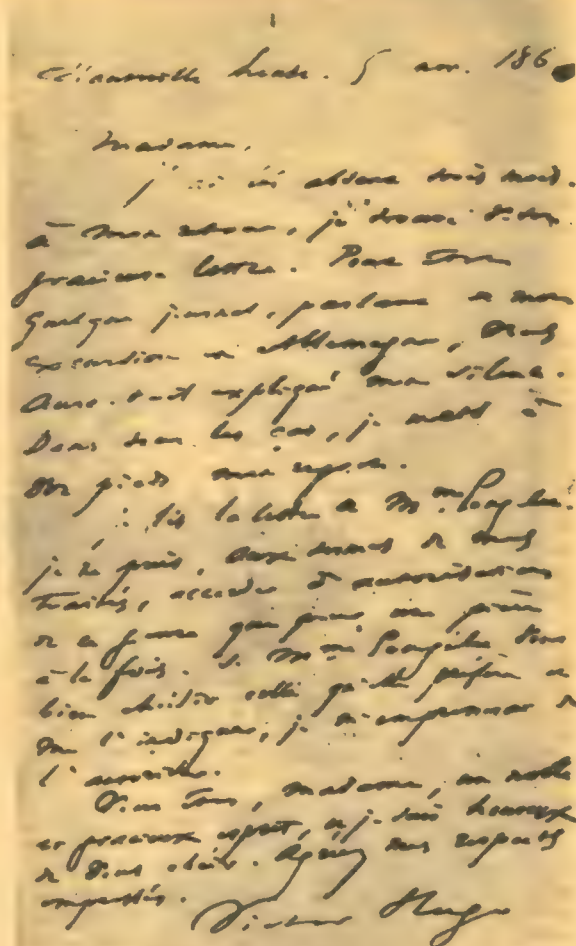 Hauteville house. 5 nov. 186
Madame,
J'ai été absent trois mois.
à mon retour, je trouve votre
gracieuse lettre. Peut être
quelque journal, parlant de mon
excursion en Allemagne, vous
aura-t-il expliqué mon silence.
Dans tous les cas, je mets à
vos pieds mon
Je lis la lettre de Mme
je ne puis, aux termes de mes
traités, accorder d'autorisation
de ce genre que pour une pièce
à la fois. Si Mme veut
bien choisir celle qu'elle préfère et
me l'indiquer, je m'empresserai de
l'autoriser.
Vous êtes, madame, un noble
et gracieux esprit, et je suis heureux
de vous obéir. Agréez mes respects
empressés.
Victor Hugo